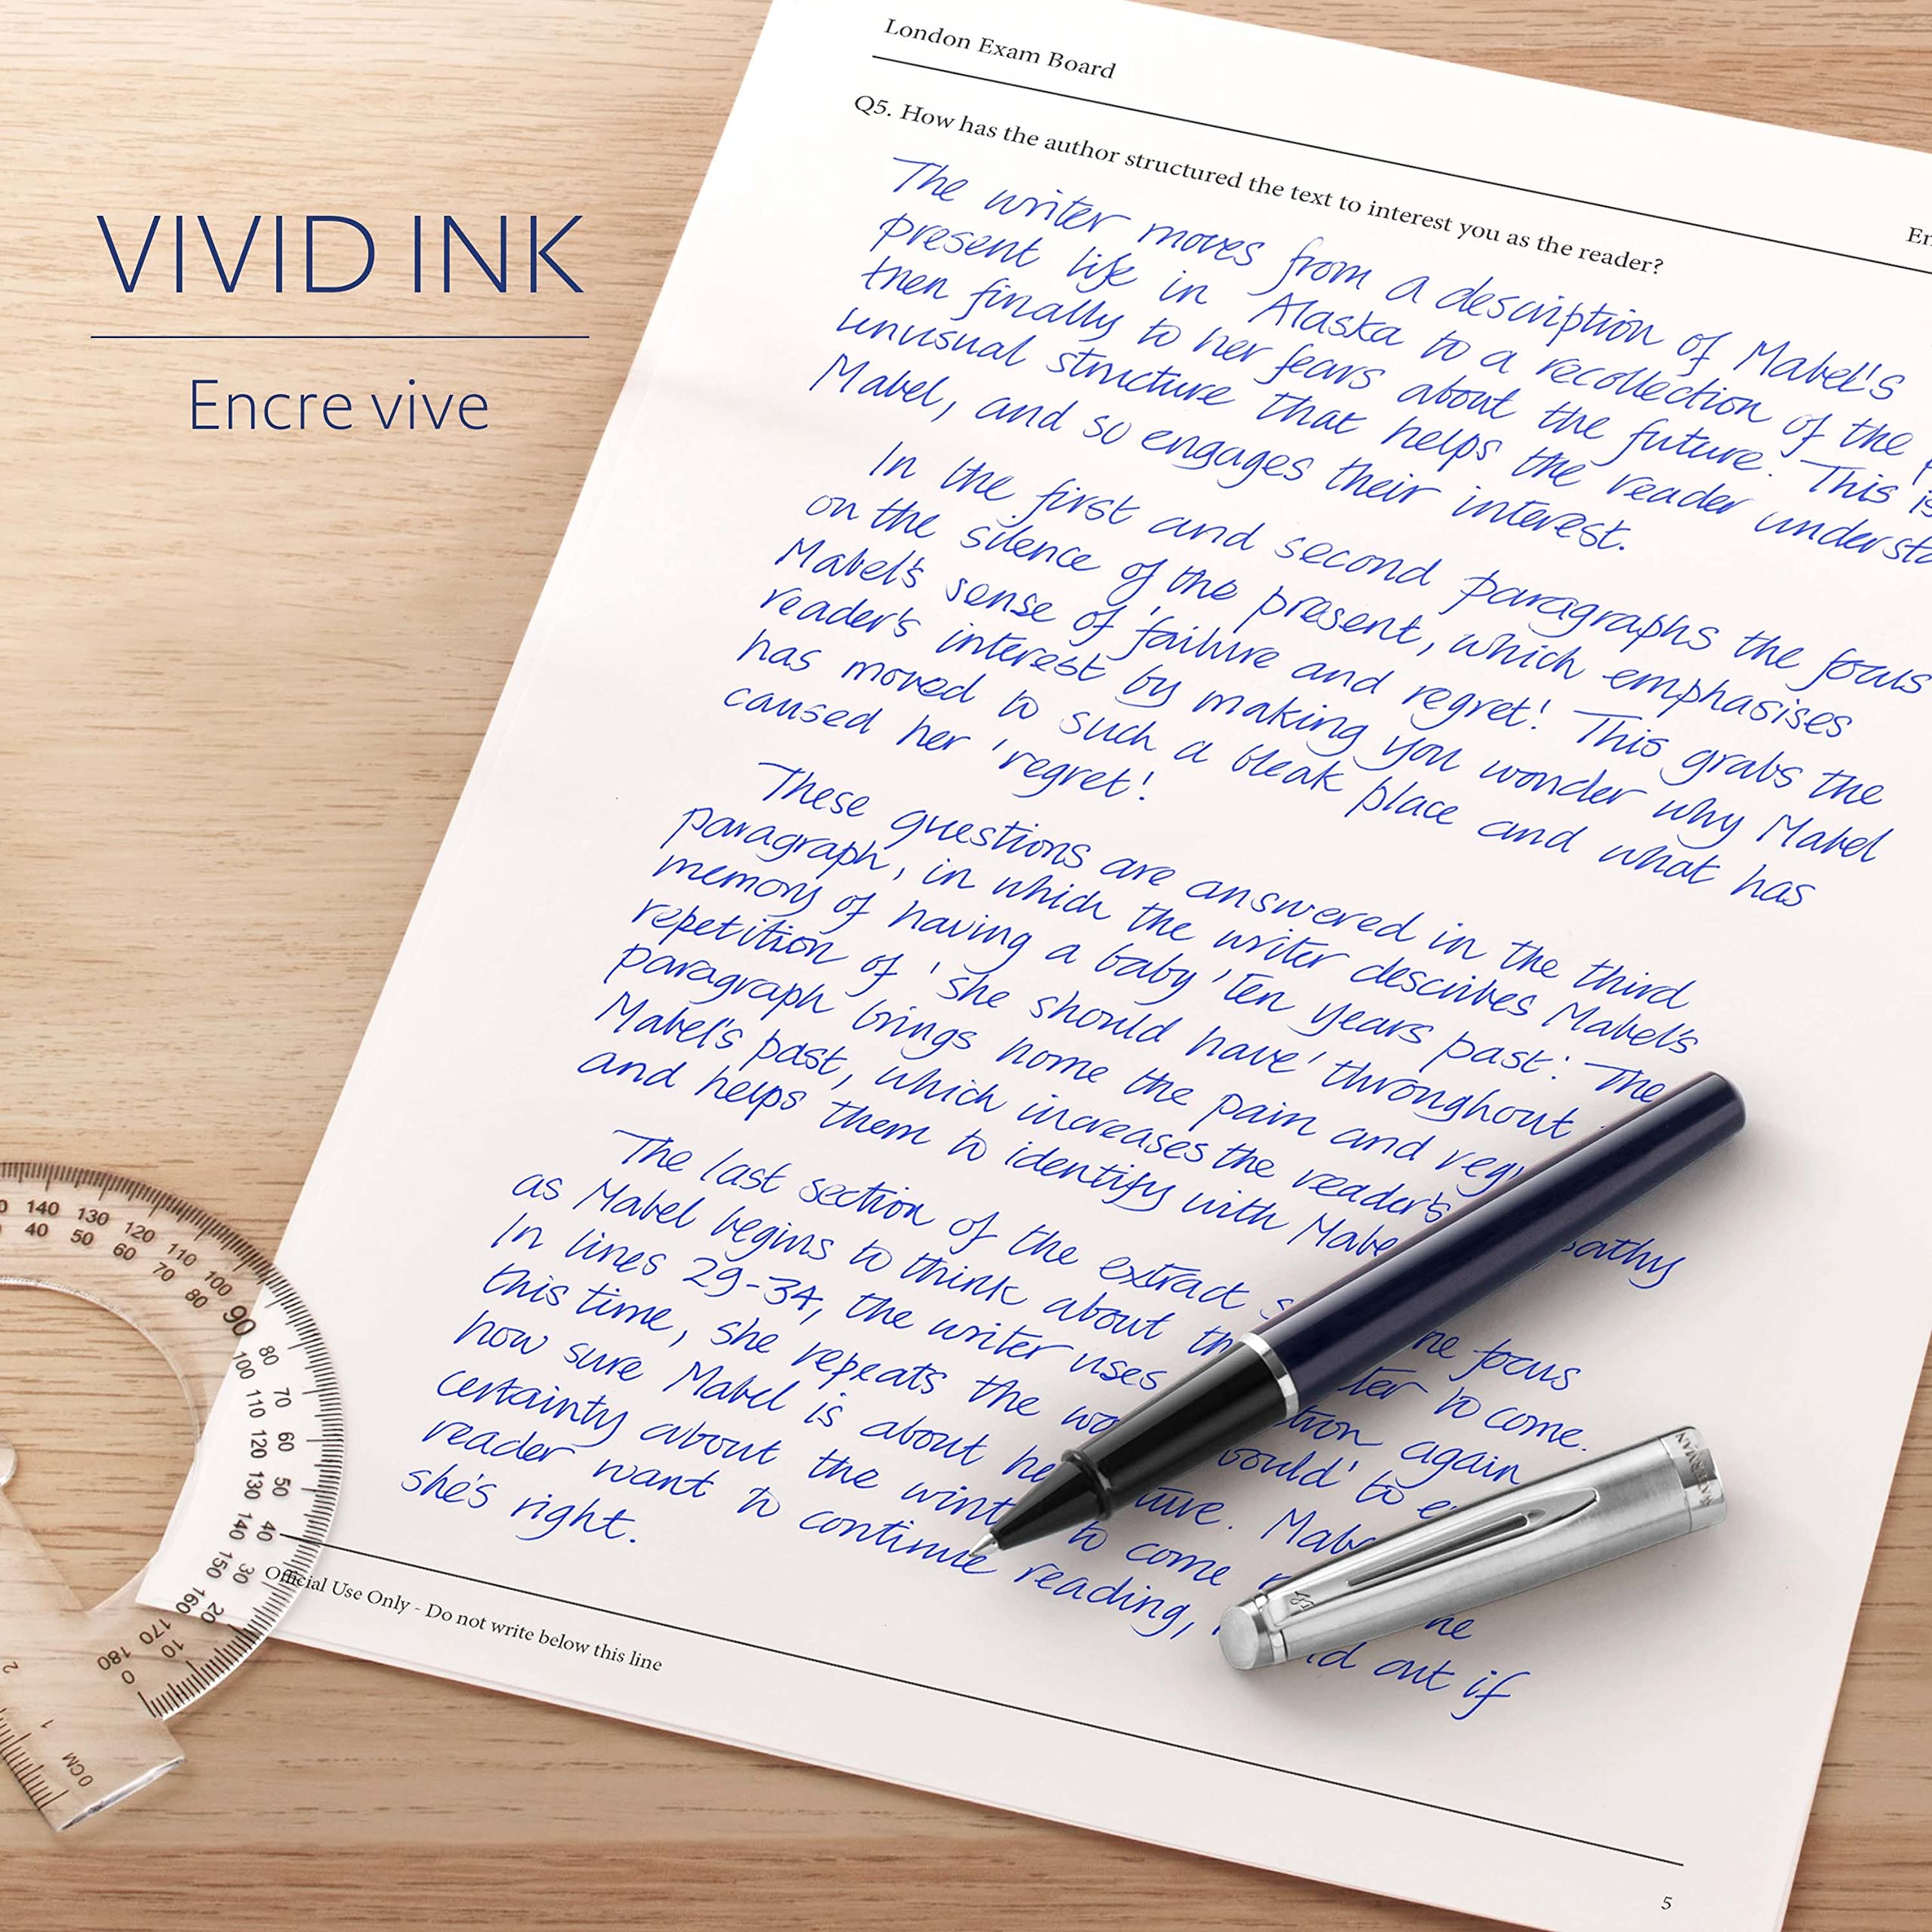 VIVID INK
Encre vive
London Exam Board
Q5. How has the author structured the text to interest you as the reader?
The writer moves from a description of Mabel's
present life in Alaska to a recollection of the
then finally to her fears about the future. This is
unusual structure that helps the reader
Mabel, and so engages their interest.
In the first and second paragraphs the focus
on the silence of the present, which emphasises
Mabel's sense of 'failure and regret'. This grabs the
reader's interest by making you wonder why Mabel
has moved to such a bleak place and what has
caused her 'regret'.
These questions are answered in the third
paragraph, in which the writer describes Mabel's
memory of having a baby 'ten years past'. The
repetition of 'she should have' throughout
paragraph brings home the pain and
Mabel's past, which increases the reader's
and helps them to identify with
The last section of the extract the focus
as Mabel begins to think about to come.
In lines 29-34, the writer uses again
this time, she repeats the to
how sure Mabel is about
certainty about the to come
reader want to continue reading, out if
she's right.
Official Use Only - Do not write below this line
5
WATERMAN
140 130 120 110 100 90 80 70 60 50 40 30 20 10 0
40 50 60 70 80 100 110 120 130 140 150 160 170 180
0CM 1 2